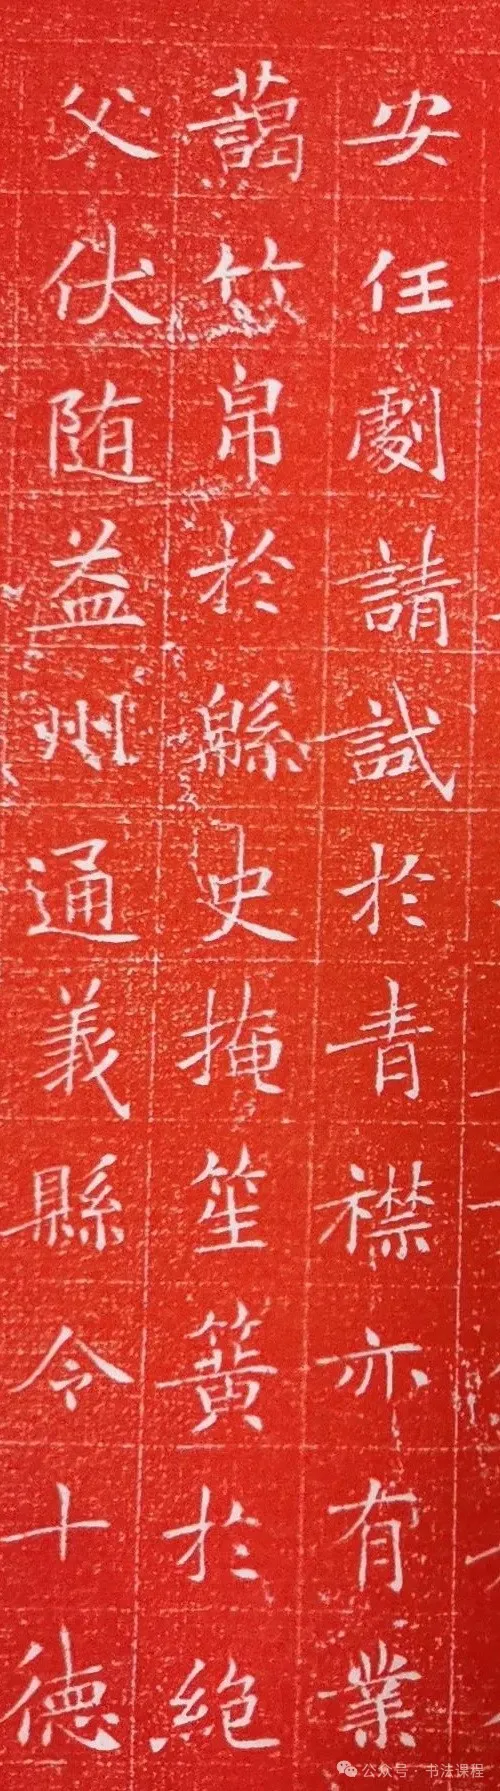 安任劇請試於青襟亦有業
藹竹帛於緜史掩笙簧於絶
父伏随益州通義縣令十徳
公众号·书法课程